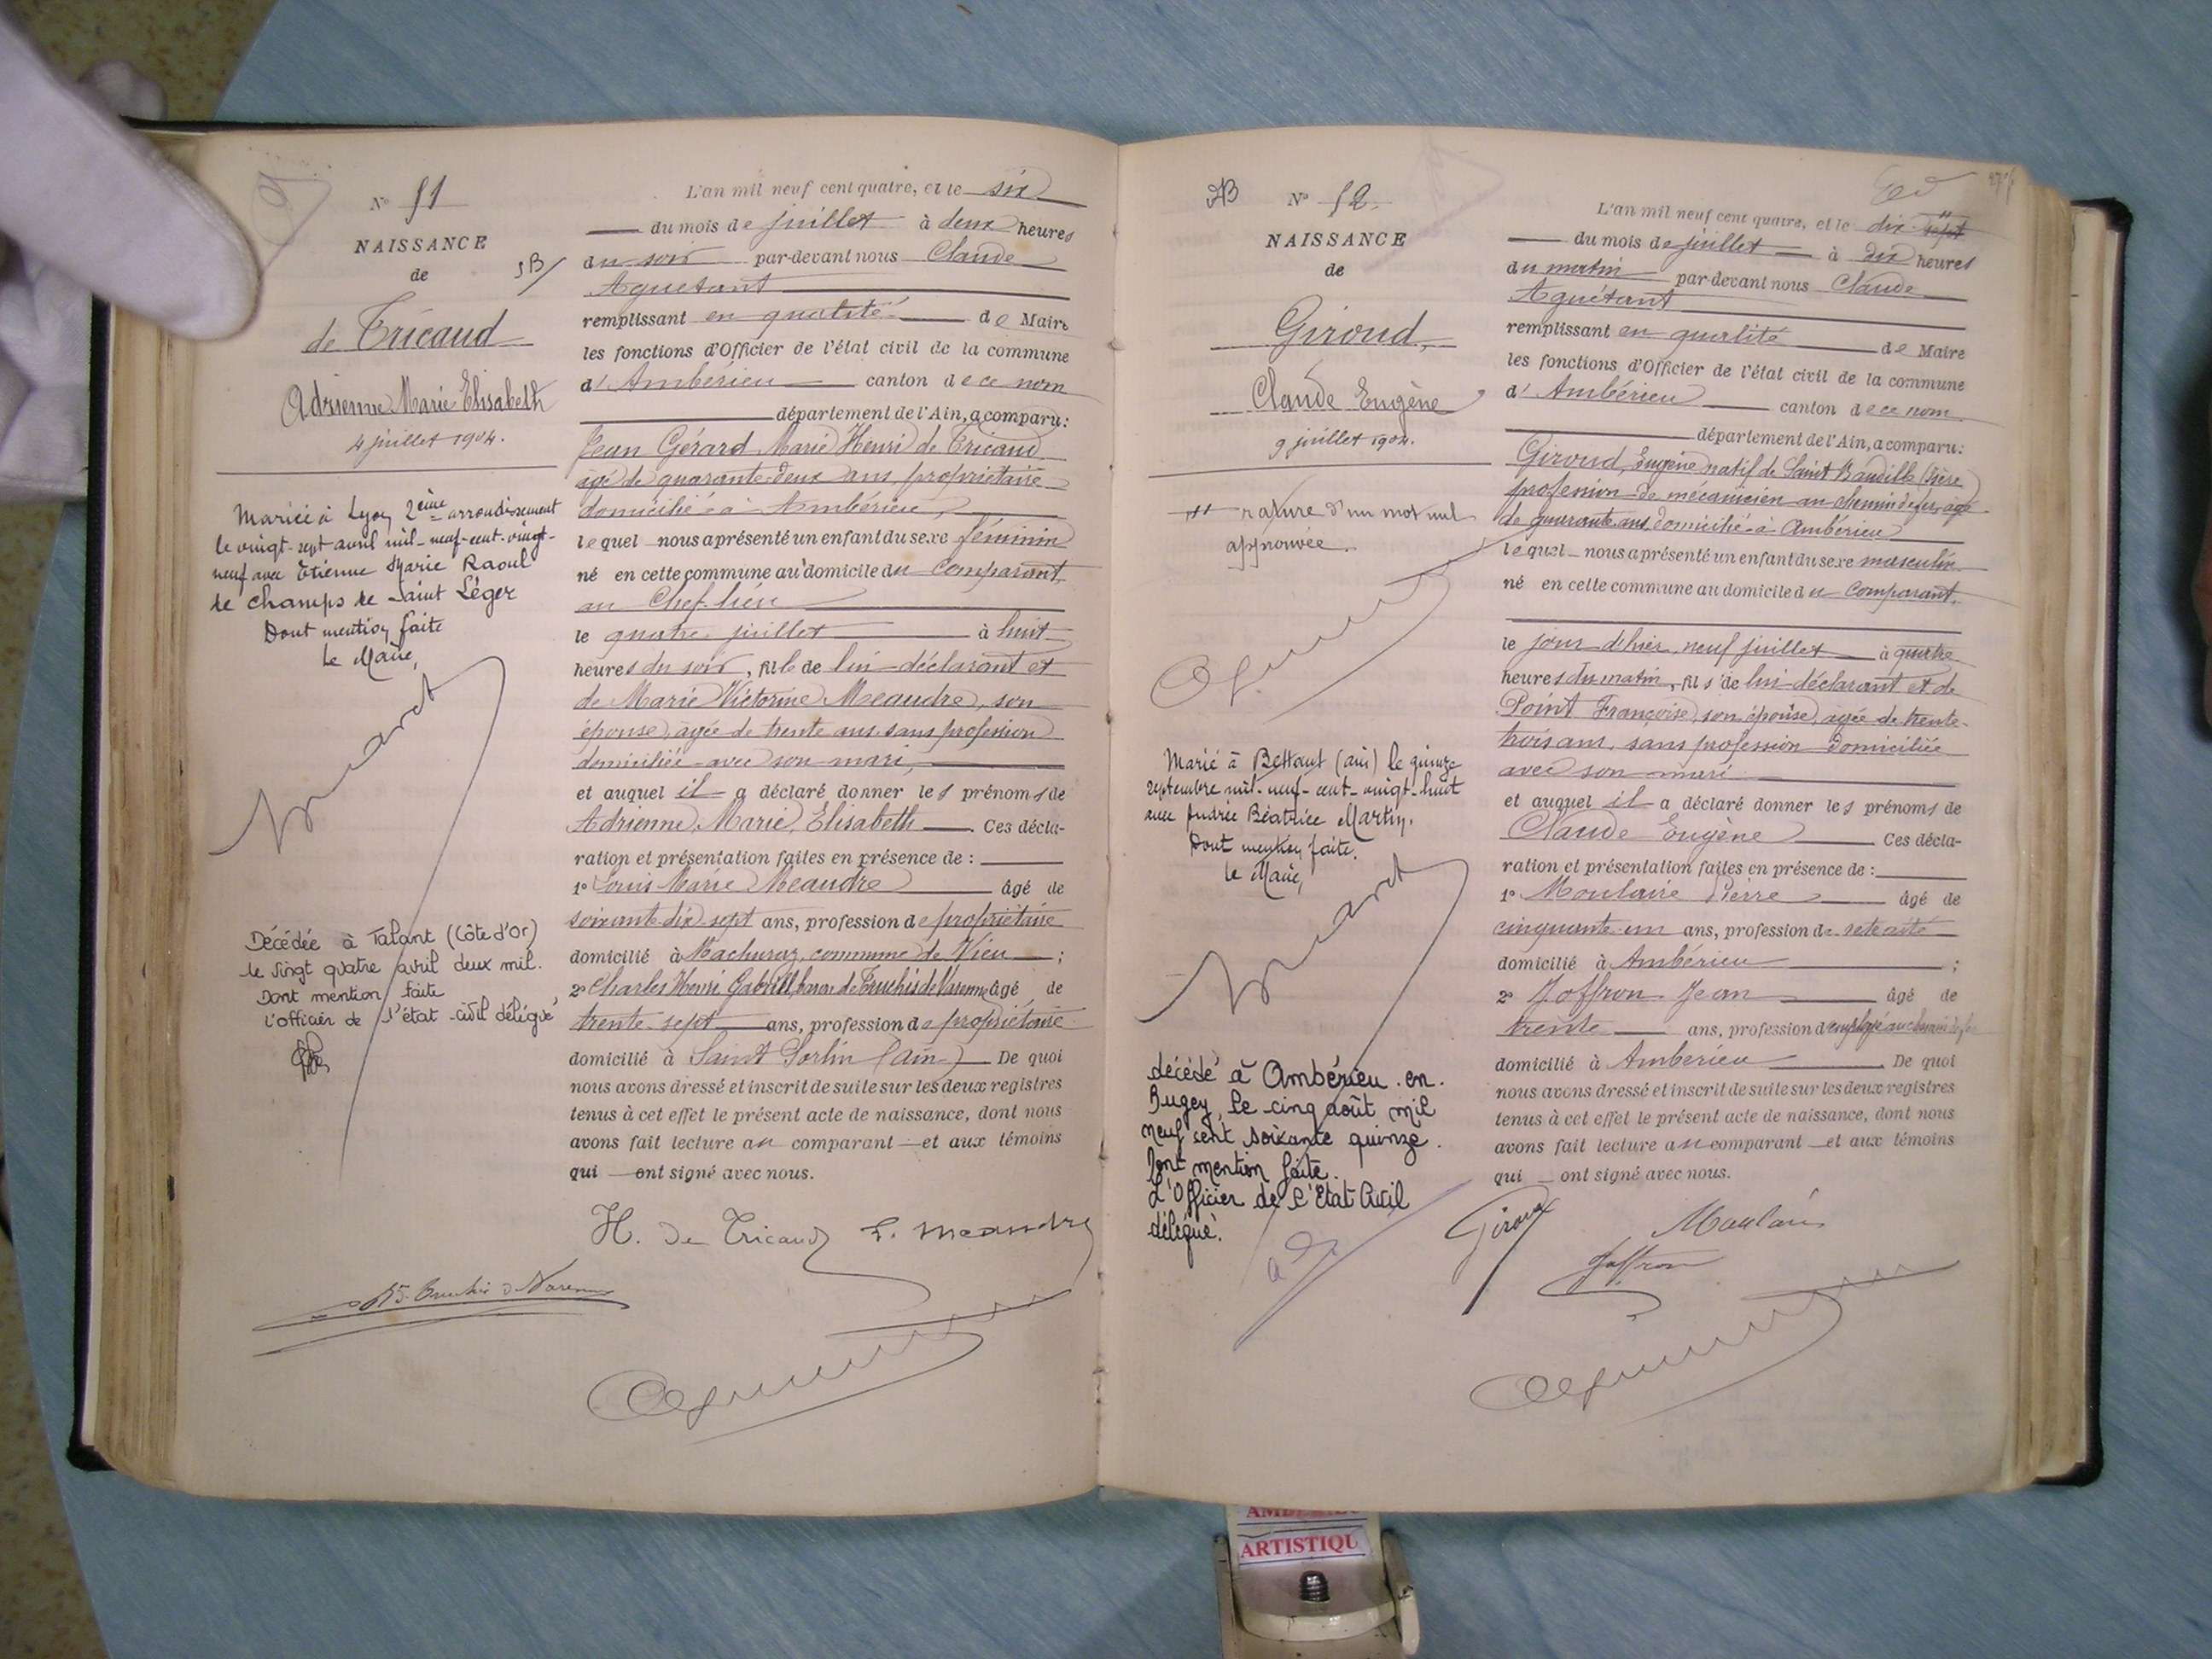 N° 51
NAISSANCE
de
de Tricaud
Adrienne Marie Elisabeth
4 juillet 1904.
Mariée à Lyon 2ème arrondissement
le vingt-sept avril mil-neuf-cent-vingt-
neuf avec Etienne Marie Raoul
de Champs de Saint Léger
Dont mention faite
Le Maire,
Décédée à Talant (Côte d'Or)
le vingt quatre avril deux mil.
Dont mention faite
l'officier de l'état-civil délégué
L'an mil neuf cent quatre, et le six
du mois de juillet à deux heures
du soir par-devant nous Claude
Aguétant
remplissant en qualité de Maire
les fonctions d'Officier de l'état civil de la commune
d'Ambérieu canton de ce nom
département de l'Ain, a comparu:
Jean Gérard Marie Henri de Tricaud
âgé de quarante-deux ans, propriétaire
domicilié à Ambérieu,
lequel nous a présenté un enfant du sexe féminin
né en cette commune au domicile du comparant,
au Chef-lieu
le quatre juillet à huit
heures du soir, fille de lui déclarant et
de Marie Victorine Meaudre, son
épouse, âgée de trente ans sans profession
domiciliée avec son mari,
et auquel il a déclaré donner les prénoms de
Adrienne Marie Elisabeth. Ces décla-
ration et présentation faites en présence de :
1° Louis Marie Meaudre âgé de
soixante-dix-sept ans, profession de propriétaire
domicilié à Machuraz, commune de Vieu ;
2° Charles Henri Gabriel, baron de Truchis de Varenne âgé de
trente-sept ans, profession de propriétaire
domicilié à Saint Sorlin (Ain) De quoi
nous avons dressé et inscrit de suite sur les deux registres
tenus à cet effet le présent acte de naissance, dont nous
avons fait lecture au comparant et aux témoins
qui ont signé avec nous.
H. de Tricaud L. Meaudre
N° 52
NAISSANCE
de
Giroud,
Claude Eugène
9 juillet 1904.
rature d'un mot nul
approuvée.
Marié à Bettant (ain) le quinze
septembre mil-neuf-cent-vingt-huit
avec Andrée Béatrice Martin.
Dont mention faite.
Le Maire,
décédé à Ambérieu-en-
Bugey, le cinq août mil
neuf cent soixante quinze.
Dont mention faite.
L'Officier de l'Etat Civil
délégué.
L'an mil neuf cent quatre, et le dix sept
du mois de juillet à dix heures
du matin par-devant nous Claude
Aguétant
remplissant en qualité de Maire
les fonctions d'Officier de l'état civil de la commune
d'Ambérieu canton de ce nom
département de l'Ain, a comparu:
Giroud, Eugène natif de Saint Baudille (Isère)
profession de mécanicien au chemin de fer, âgé
de quarante ans, domicilié à Ambérieu
lequel nous a présenté un enfant du sexe masculin
né en cette commune au domicile du comparant,
le jour d'hier neuf juillet à quatre
heures du matin, fils de lui déclarant et de
Point Françoise, son épouse, âgée de trente-
trois ans, sans profession domiciliée
avec son mari
et auquel il a déclaré donner les prénoms de
Claude Eugène Ces décla-
ration et présentation faites en présence de :
1° Moulaire Pierre âgé de
cinquante-un ans, profession de retraité
domicilié à Ambérieu ;
2° Joffron Jean âgé de
trente ans, profession d'employé au chemin de fer
domicilié à Ambérieu. De quoi
nous avons dressé et inscrit de suite sur les deux registres
tenus à cet effet le présent acte de naissance, dont nous
avons fait lecture au comparant et aux témoins
qui ont signé avec nous.
Giroud
Joffron
ARTISTIQU